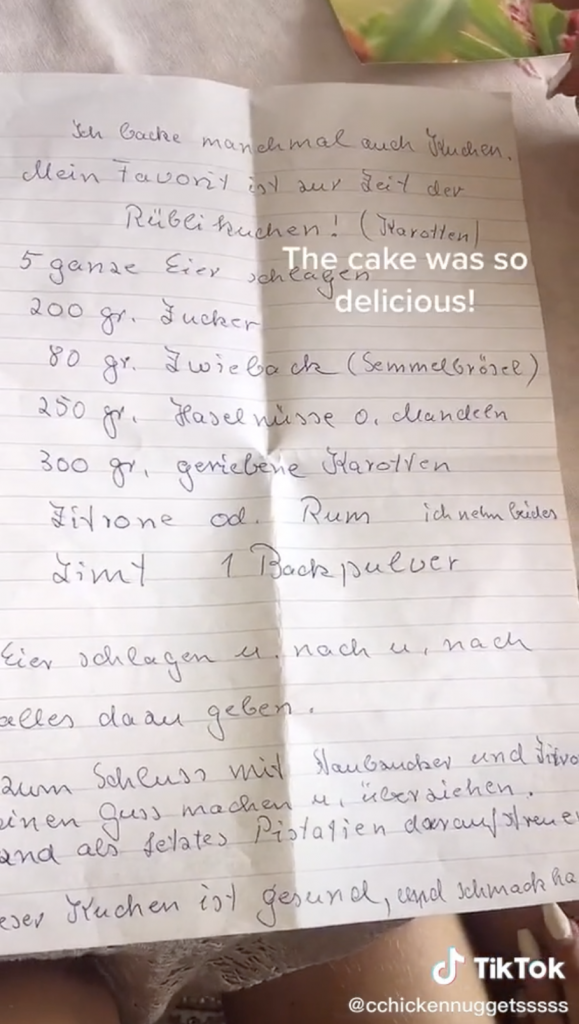 Ich backe manchmal auch Kuchen.
Mein Favorit ist zur Zeit der
Rüblikuchen! (Karotten)
5 ganze Eier schlagen
The cake was so
delicious!
200 gr. Zucker
80 gr. Zwieback (Semmelbrösel)
250 gr. Haselnüsse o. Mandeln
300 gr. geriebene Karotten
Zitrone od. Rum ich nehm beides
Zimt 1 Backpulver
Eier schlagen u. nach u. nach
alles dazu geben.
zum Schluss mit Staubzucker und
einen Guss machen u. überziehen.
und als letztes Pistatien darauf
Kuchen ist gesund, und
TikTok
@cchickennuggetsssss